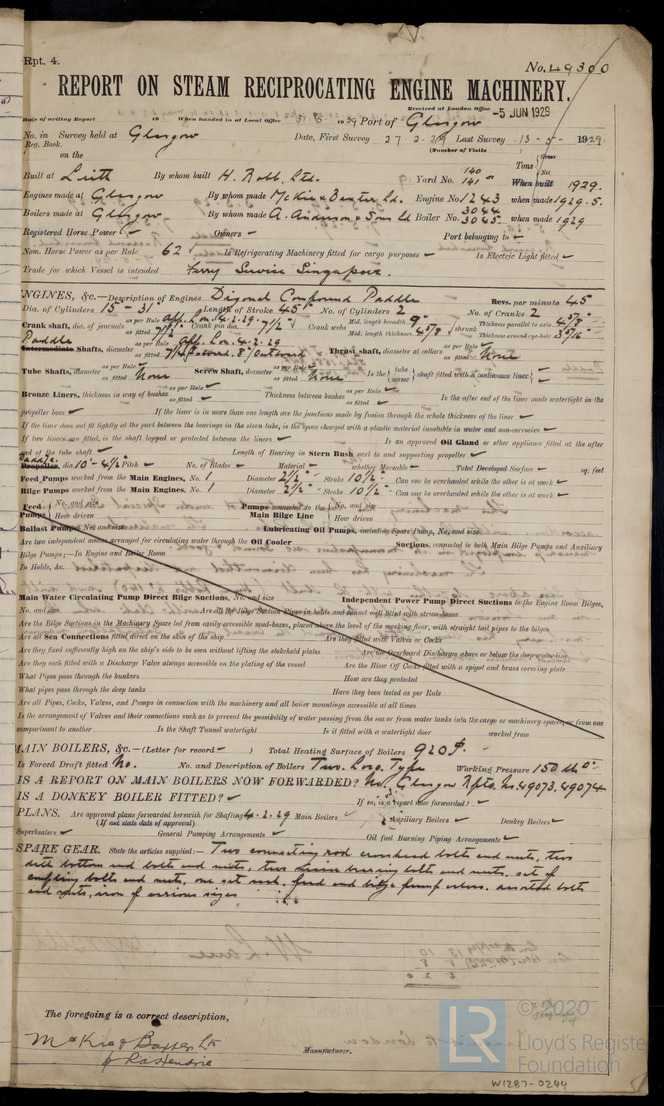 Rpt. 4.
No. 49300
REPORT ON STEAM RECIPROCATING ENGINE MACHINERY.
Received at London Office -5 JUN 1929
Date of writing Report 19 When handed in at Local Office 19 29 Port of Glasgow
No. in Survey held at Glasgow Date, First Survey 27-2-29 Last Survey 13-5- 1929
Reg. Book. (Number of Visits
on the Tons Gross Net
Built at Leith By whom built H. Robb, Ltd. Yard No. 140 141 When built 1929.
Engines made at Glasgow By whom made McKie & Baxter Ld. Engine No. 1243 when made 1929.5.
Boilers made at Glasgow By whom made A. Anderson & Sons Ld Boiler No. 3044 3045 when made 1929
Registered Horse Power Owners Port belonging to
Nom. Horse Power as per Rule 62 Is Refrigerating Machinery fitted for cargo purposes Is Electric Light fitted
Trade for which Vessel is intended Ferry Service Singapore.
ENGINES, &c.—Description of Engines Diagonal Compound Paddle Revs. per minute 45
Dia. of Cylinders 15" - 31" Length of Stroke 45" No. of Cylinders 2 No. of Cranks 2
Crank shaft, dia. of journals as per Rule App. Lon. 4.2.29 as fitted 7½" Crank pin dia. 7½" Crank webs Mid. length breadth 9" Mid. length thickness 4⅝" shrunk Thickness parallel to axis 4⅝" Thickness around eye-hole 3 5/16"
Paddle
Intermediate Shafts, diameter as per Rule App. Lon. 4.2.29 as fitted 7½" Inboard. 8" Outboard Thrust shaft, diameter at collars as per Rule as fitted None
Tube Shafts, diameter as per Rule as fitted None Screw Shaft, diameter as per Rule as fitted None Is the tube screw shaft fitted with a continuous liner
Bronze Liners, thickness in way of bushes as per Rule as fitted Thickness between bushes as per Rule as fitted Is the after end of the liner made watertight in the
propeller boss If the liner is in more than one length are the junctions made by fusion through the whole thickness of the liner
If the liner does not fit tightly at the part between the bearings in the stern tube, is the space charged with a plastic material insoluble in water and non-corrosive
If two liners are fitted, is the shaft lapped or protected between the liners Is an approved Oil Gland or other appliance fitted at the after
end of the tube shaft Length of Bearing in Stern Bush next to and supporting propeller
Paddle
Propeller, dia. 10'-4½" Pitch No. of Blades Material whether Moveable Total Developed Surface sq. feet
Feed Pumps worked from the Main Engines, No. 1 Diameter 2½" Stroke 10½" Can one be overhauled while the other is at work
Bilge Pumps worked from the Main Engines, No. 1 Diameter 2½" Stroke 10½" Can one be overhauled while the other is at work
Feed Pumps No. and size How driven Pumps connected to the Main Bilge Line No. and size How driven
Ballast Pumps, No. and size Lubricating Oil Pumps, including Spare Pump, No. and size
Are two independent means arranged for circulating water through the Oil Cooler Suctions, connected to both Main Bilge Pumps and Auxiliary
Bilge Pumps;—In Engine and Boiler Room
In Holds, &c.
Main Water Circulating Pump Direct Bilge Suctions, No. and size Independent Power Pump Direct Suctions to the Engine Room Bilges,
No. and size Are all the Bilge Suction Pipes in holds and tunnel well fitted with strum-boxes
Are the Bilge Suctions in the Machinery Space led from easily accessible mud-boxes, placed above the level of the working floor, with straight tail pipes to the bilges
Are all Sea Connections fitted direct on the skin of the ship Are they fitted with Valves or Cocks
Are they fixed sufficiently high on the ship's side to be seen without lifting the stokehold plates Are the Overboard Discharges above or below the deep water line
Are they each fitted with a Discharge Valve always accessible on the plating of the vessel Are the Blow Off Cocks fitted with a spigot and brass covering plate
What Pipes pass through the bunkers How are they protected
What pipes pass through the deep tanks Have they been tested as per Rule
Are all Pipes, Cocks, Valves, and Pumps in connection with the machinery and all boiler mountings accessible at all times
Is the arrangement of Valves and their connections such as to prevent the possibility of water passing from the sea or from water tanks into the cargo or machinery spaces, or from one
compartment to another Is the Shaft Tunnel watertight Is it fitted with a watertight door worked from
MAIN BOILERS, &c.—(Letter for record ) Total Heating Surface of Boilers 920
Is Forced Draft fitted No. No. and Description of Boilers Two. Loco. Type Working Pressure 150
IS A REPORT ON MAIN BOILERS NOW FORWARDED? No. Glasgow Rpts. Nos. 49073. 49074
IS A DONKEY BOILER FITTED? If so, is a report now forwarded?
PLANS. Are approved plans forwarded herewith for Shafting 4.2.29 Main Boilers Auxiliary Boilers Donkey Boilers
(If not state date of approval)
Superheaters General Pumping Arrangements Oil fuel Burning Piping Arrangements
SPARE GEAR. State the articles supplied:— Two connecting rod crosshead bolts and nuts, two
ditto bottom end bolts and nuts, two main bearing bolts and nuts, set of
coupling bolts and nuts, one set each, feed and bilge pump valves. assorted bolts
and nuts, iron of various sizes
The foregoing is a correct description,
McKie & Baxter Ld
Manufacturer.
LR
© 2020
Lloyd's Register
Foundation
W1287-0244